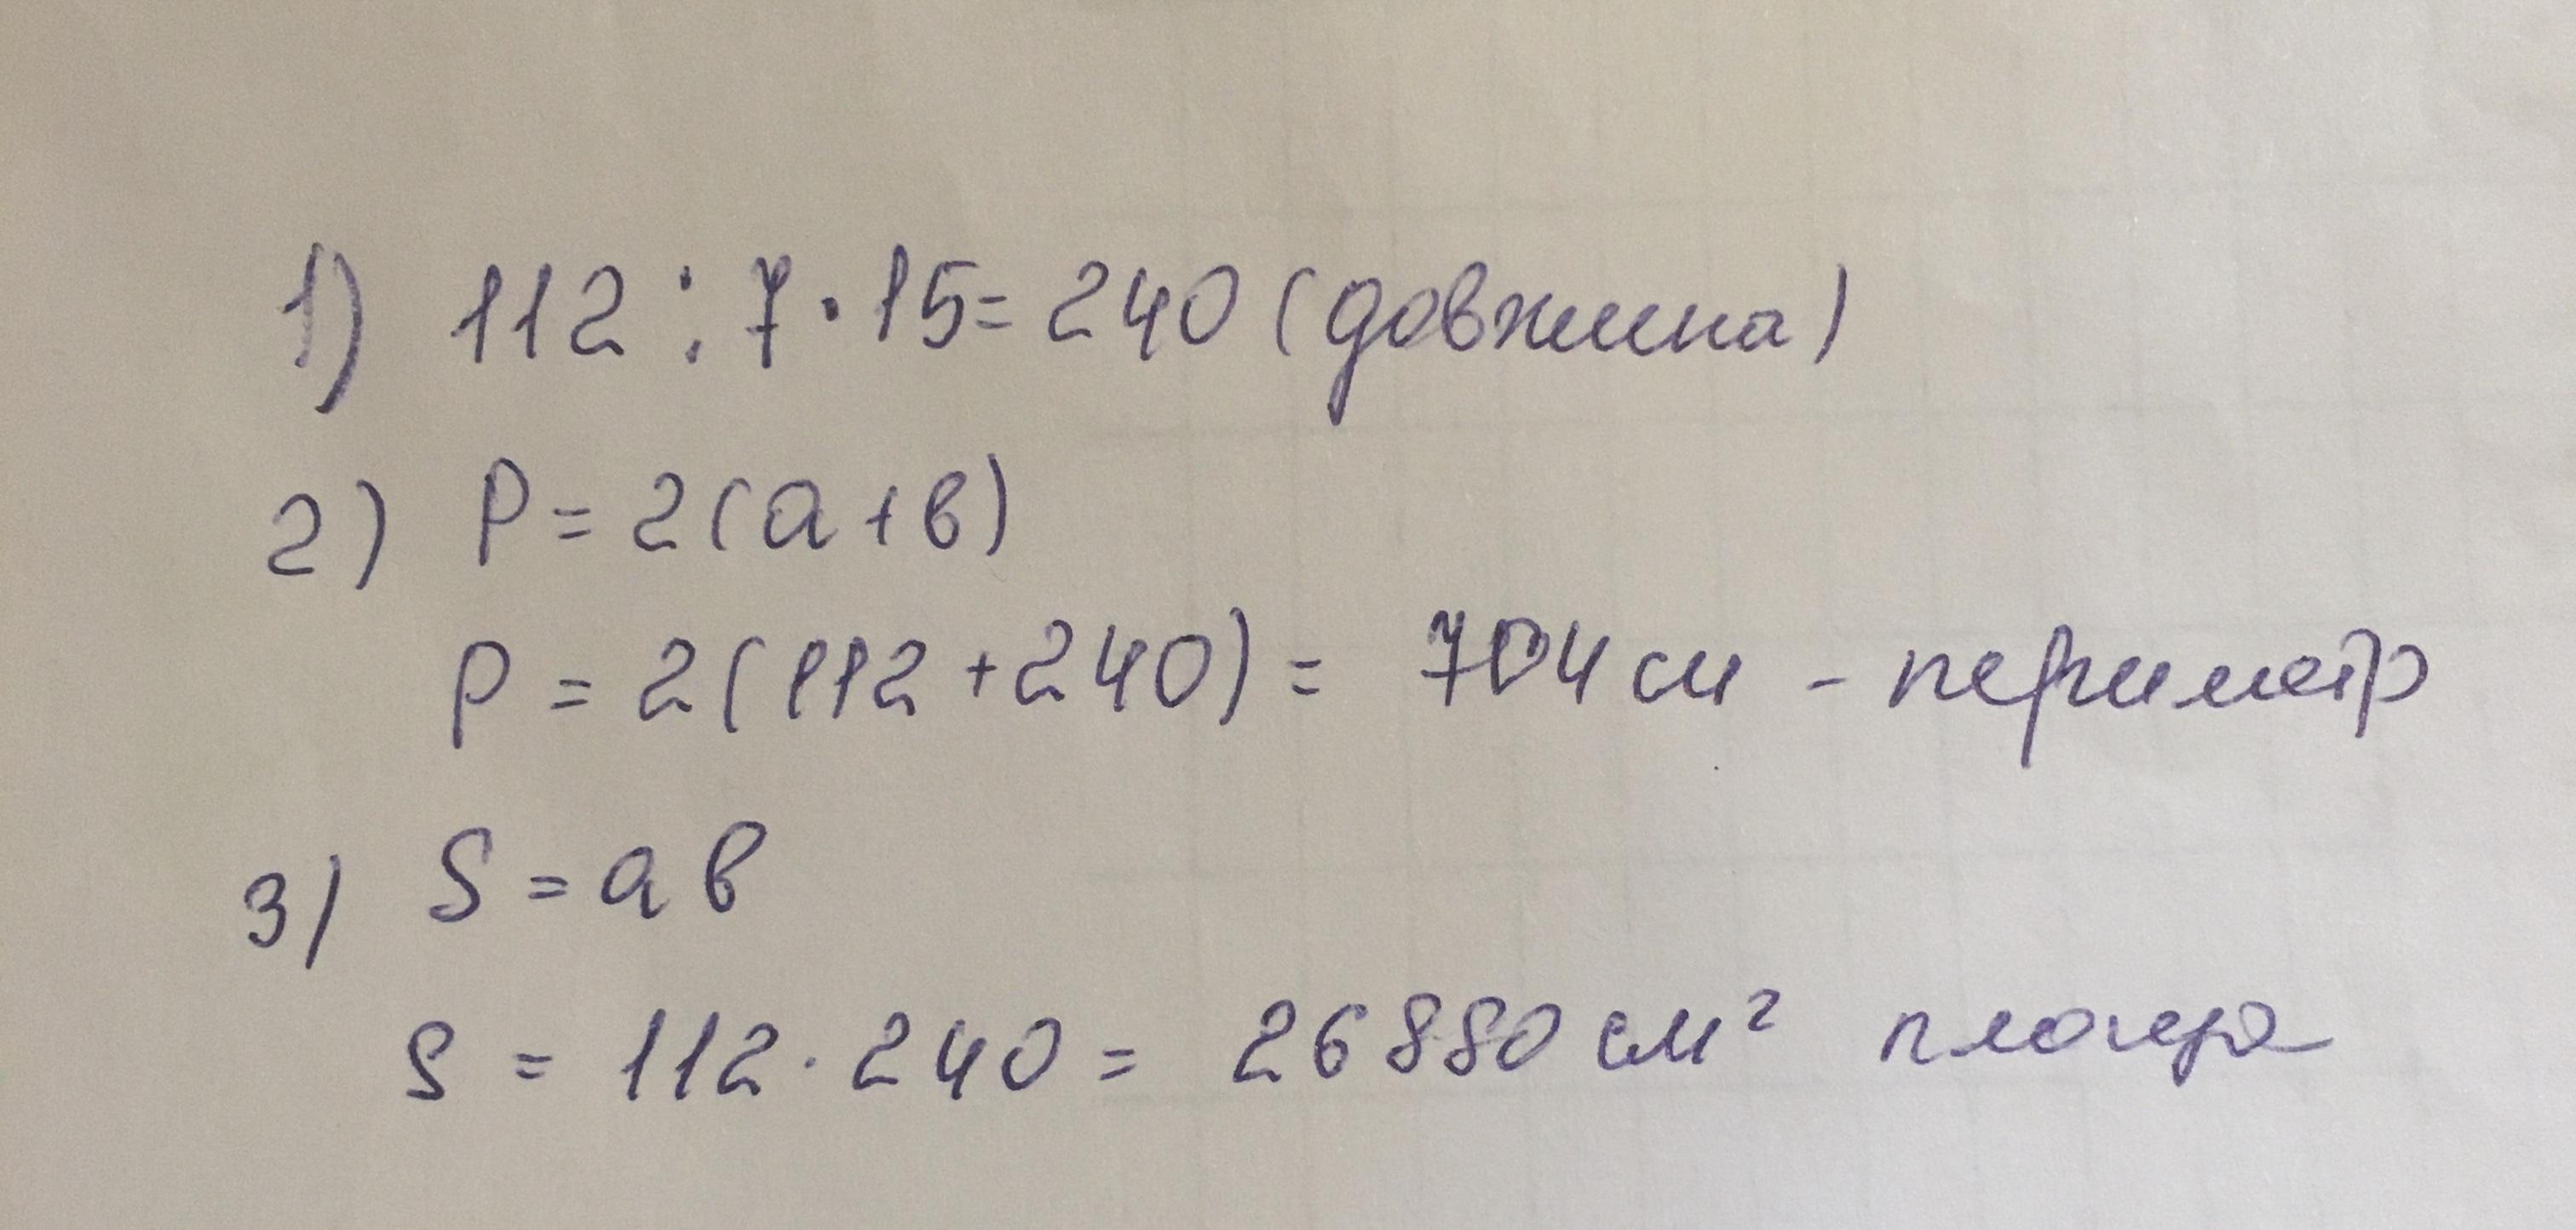 1) 112 : 7 · 15 = 240 (довжина)
2) P = 2(a + в)
P = 2(112 + 240) = 704 см - периметр
3) S = a в
S = 112 · 240 = 26880 см² площа